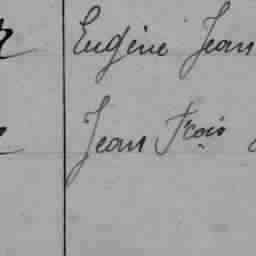 Eugène Jean
Jean Frois